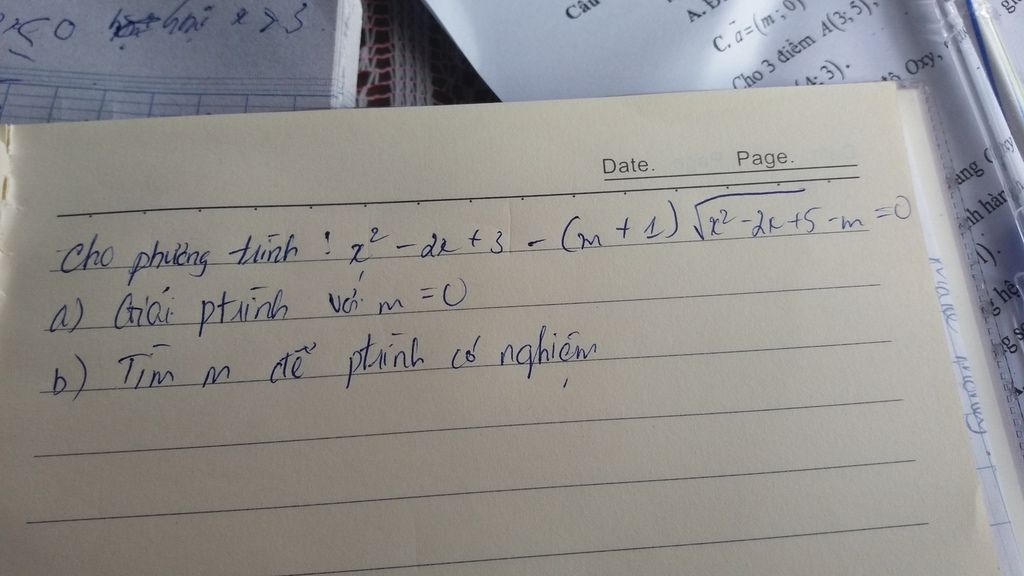 ≤ 0 hoặc x ≥ 3
Câu
A.
C. a=(m;0)
Cho 3 điểm A(3;5),
(4;3).
độ Oxy,
Date. Page.
Cho phương trình : x² - 2x + 3 - (m + 1) √(x² - 2x + 5) - m = 0
a) Giải ptrình với m = 0
b) Tìm m để ptrình có nghiệm